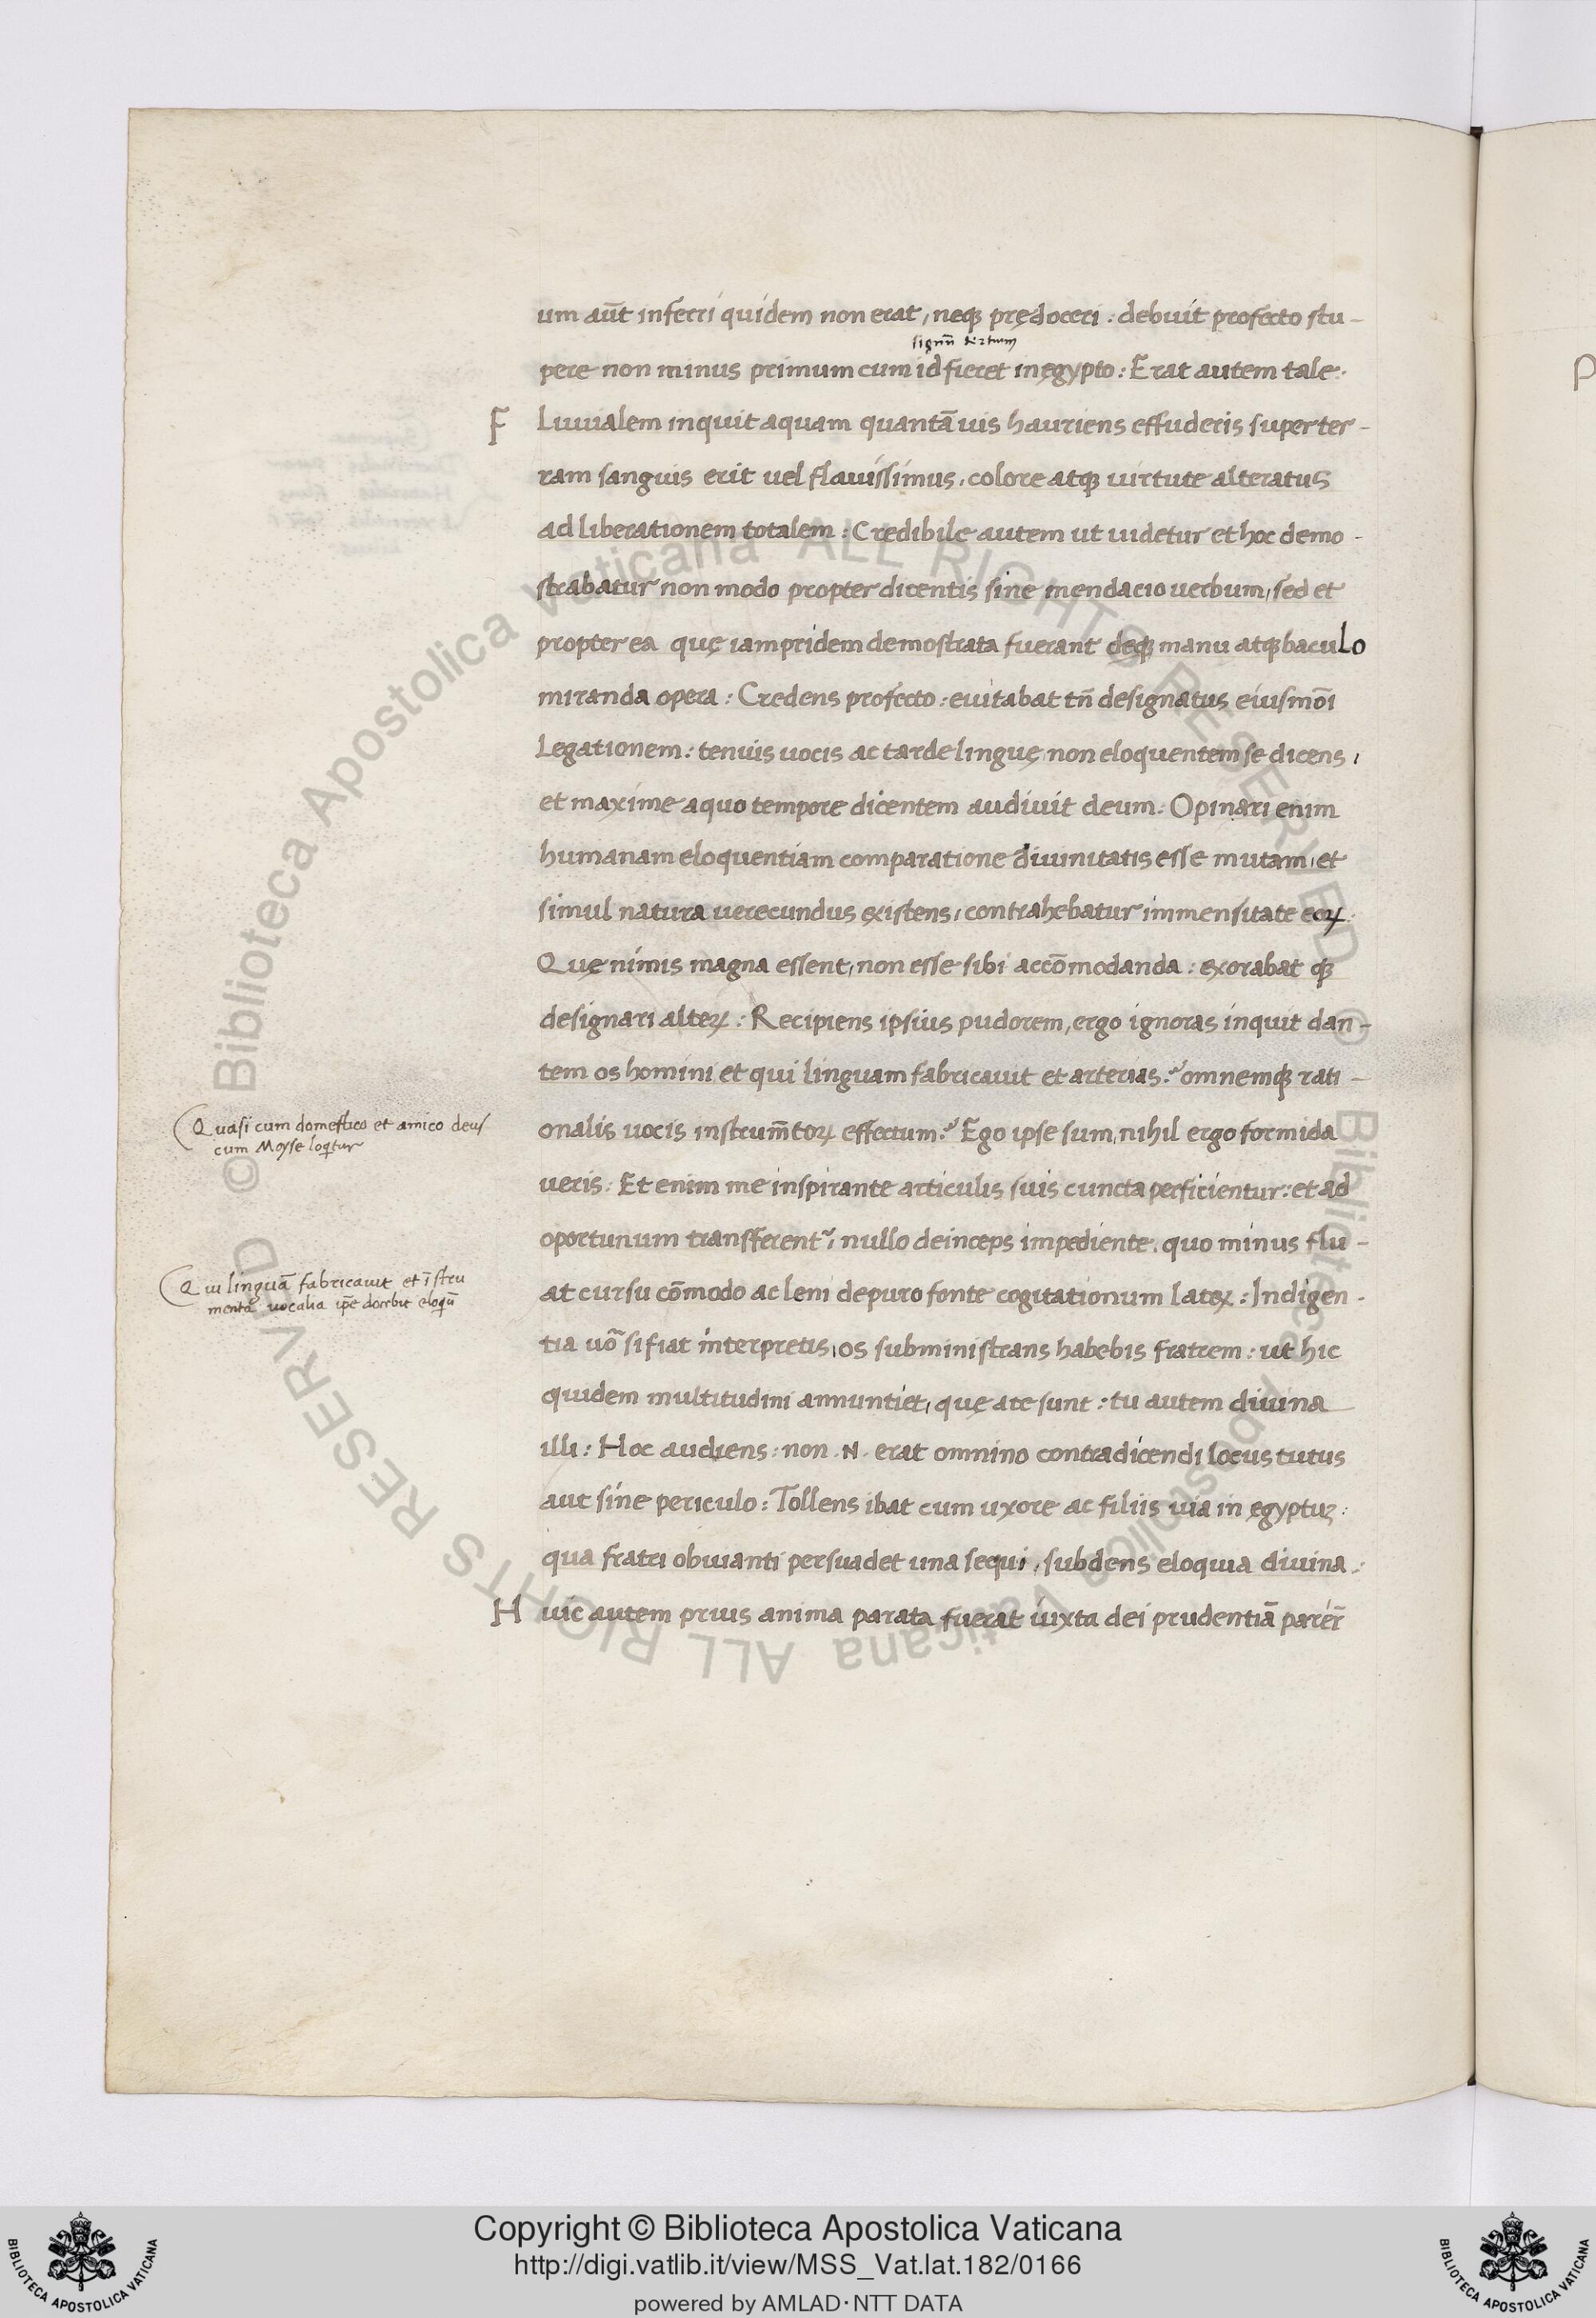 um aūt inferri quidem non erat, neqꝫ prędoceri : debuit profecto stu-
signū tertium
pere non minus primum cum id fieret in ęgypto : Erat autem tale :
Fluuialem inquit aquam quantā uis hauriens effuderis super ter-
ram sanguis erit uel flauissimus, colore atqꝫ uirtute alteratus
ad liberationem totalem : Credibile autem ut uidetur et hoc demo-
strabatur non modo propter dicentis sine mendacio uerbum, sed et
propter ea quę iampridem demostrata fuerant deqꝫ manu atqꝫ baculo
miranda opera : Credens profecto : euitabat tn̄ designatus eiusmōi
Legationem : tenuis uocis ac tarde linguę non eloquentem se dicens,
et maxime a quo tempore dicentem audiuit deum : Opinari enim
humanam eloquentiam comparatione diuinitatis esse mutam, et
simul natura uerecundus existens, contrahebatur immensitate eoꝝ
Quę nimis magna essent, non esse sibi accōmodanda : exorabat qꝫ
designari alteꝝ : Recipiens ipsius pudorem, ergo ignoras inquit dan-
tem os homini et qui linguam fabricauit et arterias ? omnemqꝫ rati-
Quasi cum domestico et amico deus
cum Moyse loqͥtur
onalis uocis instrum̄toꝝ effectum ? Ego ipse sum, nihil ergo formida
ueris : Et enim me inspirante articulis suis cuncta perficientur : et ad
oportunum transferent᷑, nullo deinceps impediente, quo minus flu-
Qui linguā fabricauit et īstru
menta uocalia ip̄e docebit eloqū
at cursu cōmodo ac leni de puro fonte cogitationum lateꝝ : Indigen-
tia uō si fiat interpretis, os subministrans habebis fratrem : ut hic
quidem multitudini annuntiet, quę a te sunt : tu autem diuina
illi : Hoc audiens : non .N. erat omnino contradicendi locus tutus
aut sine periculo : Tollens ibat cum uxore ac filiis uia in ęgyptuꝫ :
qua fratri obuianti persuadet una sequi, subdens eloquia diuina :
Huic autem prius anima parata fuerat iuxta dei prudentiā parer̄
© Biblioteca Apostolica Vaticana ALL RIGHTS RESERVED © Biblioteca Apostolica Vaticana ALL RIGHTS RESERVED
Copyright © Biblioteca Apostolica Vaticana
http://digi.vatlib.it/view/MSS_Vat.lat.182/0166
powered by AMLAD·NTT DATA
BIBLIOTECA APOSTOLICA VATICANA
BIBLIOTECA APOSTOLICA VATICANA